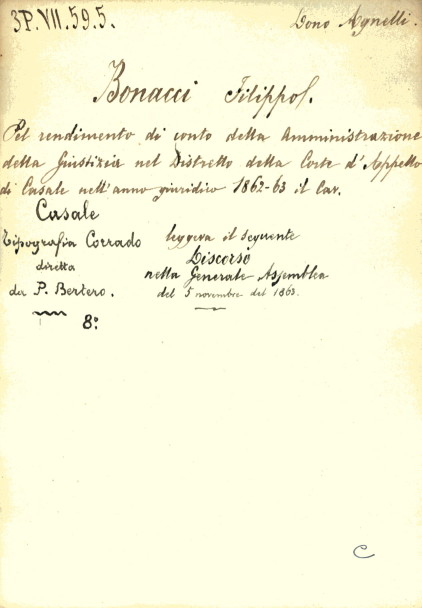 3P.VII.59.5.
Dono Agnelli.
Bonacci Filippo.
Pel rendimento di conto della Amministrazione
della Giustizia nel Distretto della Corte d'Appello
di Casale nell'anno giuridico 1862-63 il Cav.
leggeva il seguente
Discorso
nella Generale Assemblea
del 5 novembre del 1863.
Casale
Tipografia Corrado
diretta
da P. Bertero.
8.°
C